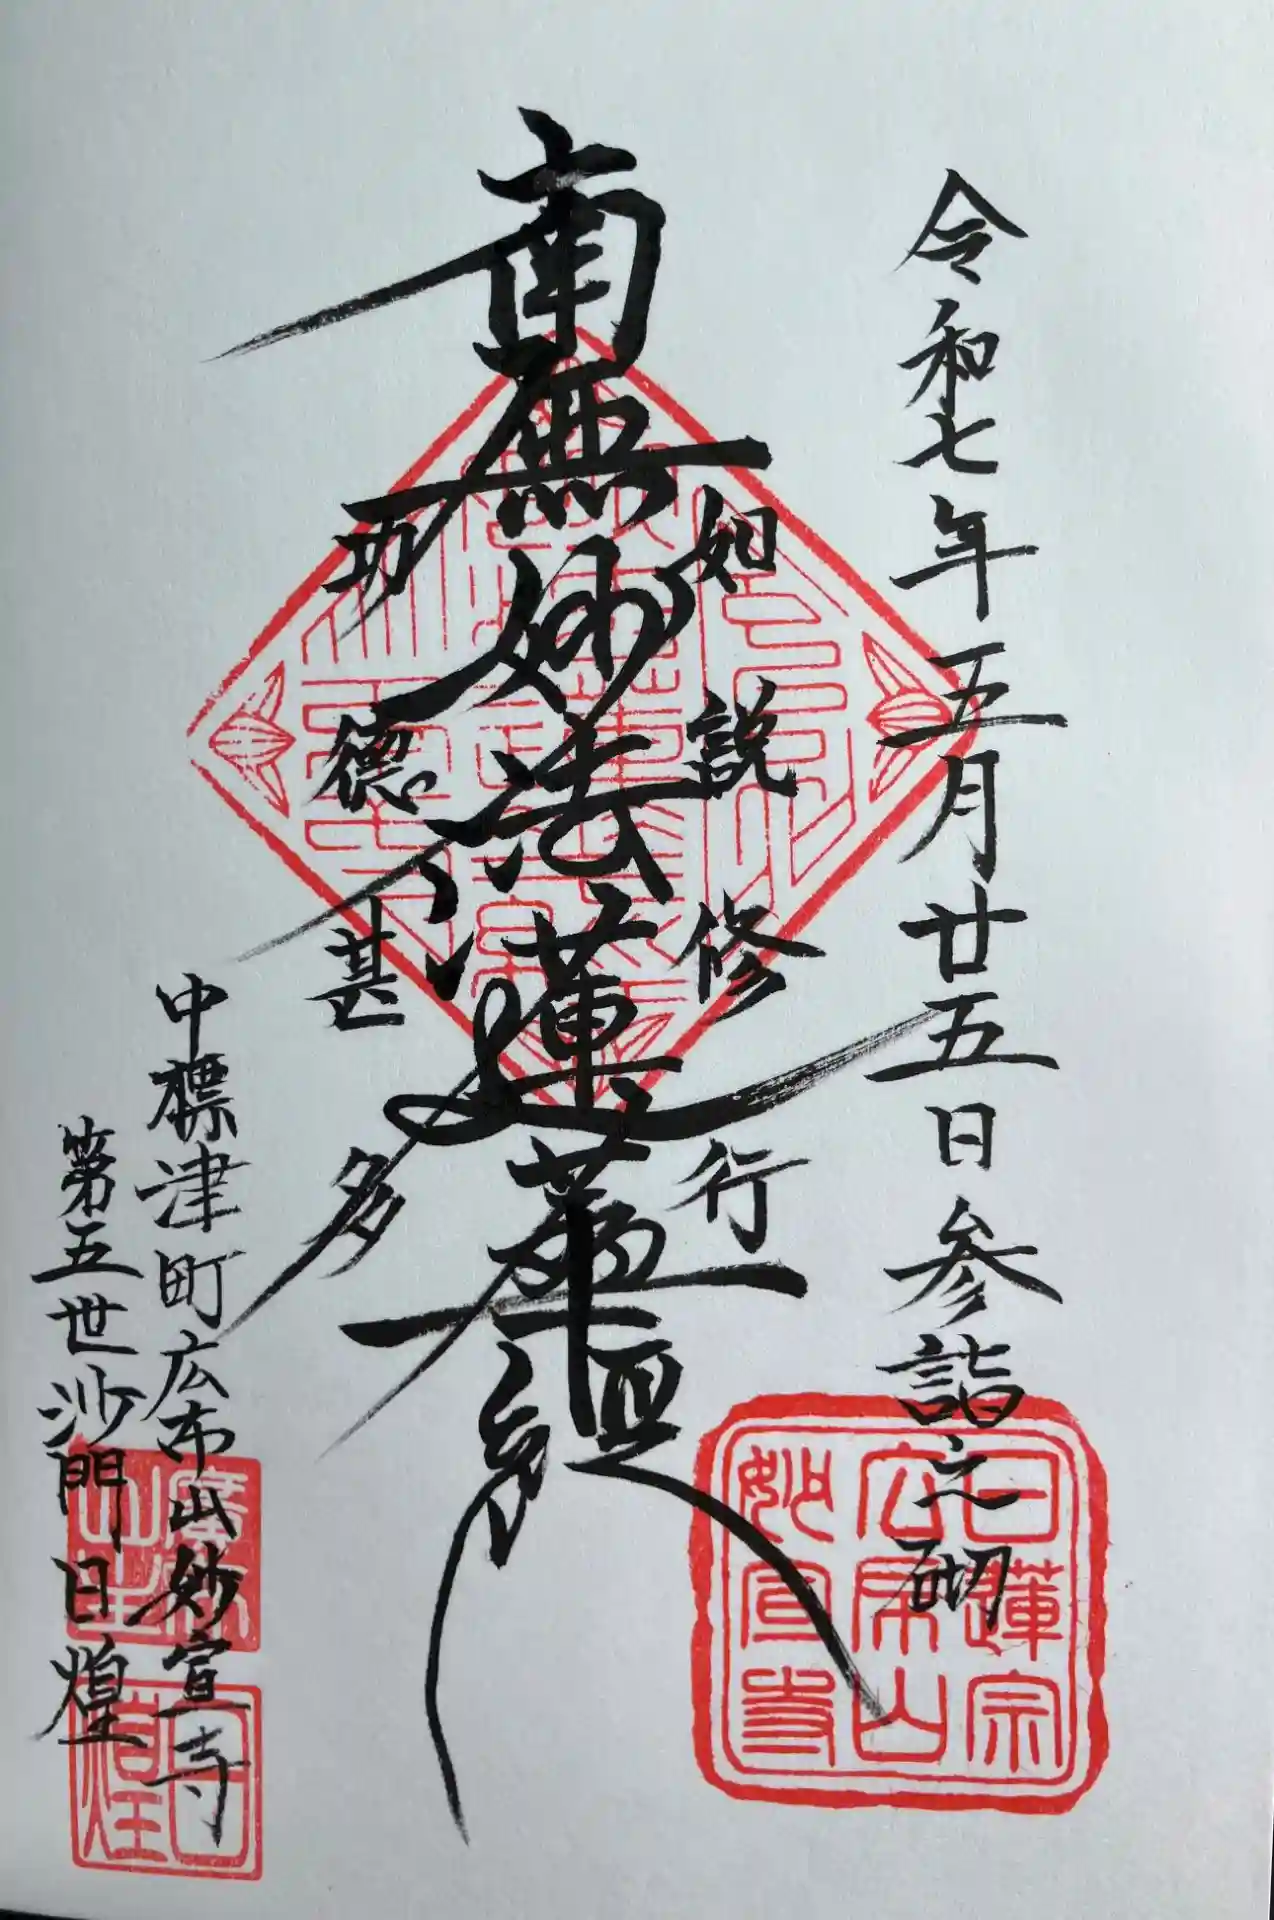 令和七年五月廿五日参詣之砌
如説修行
南無妙法蓮華経
功德甚多
中標津町広布山妙宣寺
第五世沙門日煌
日蓮宗
広布山
妙宣寺